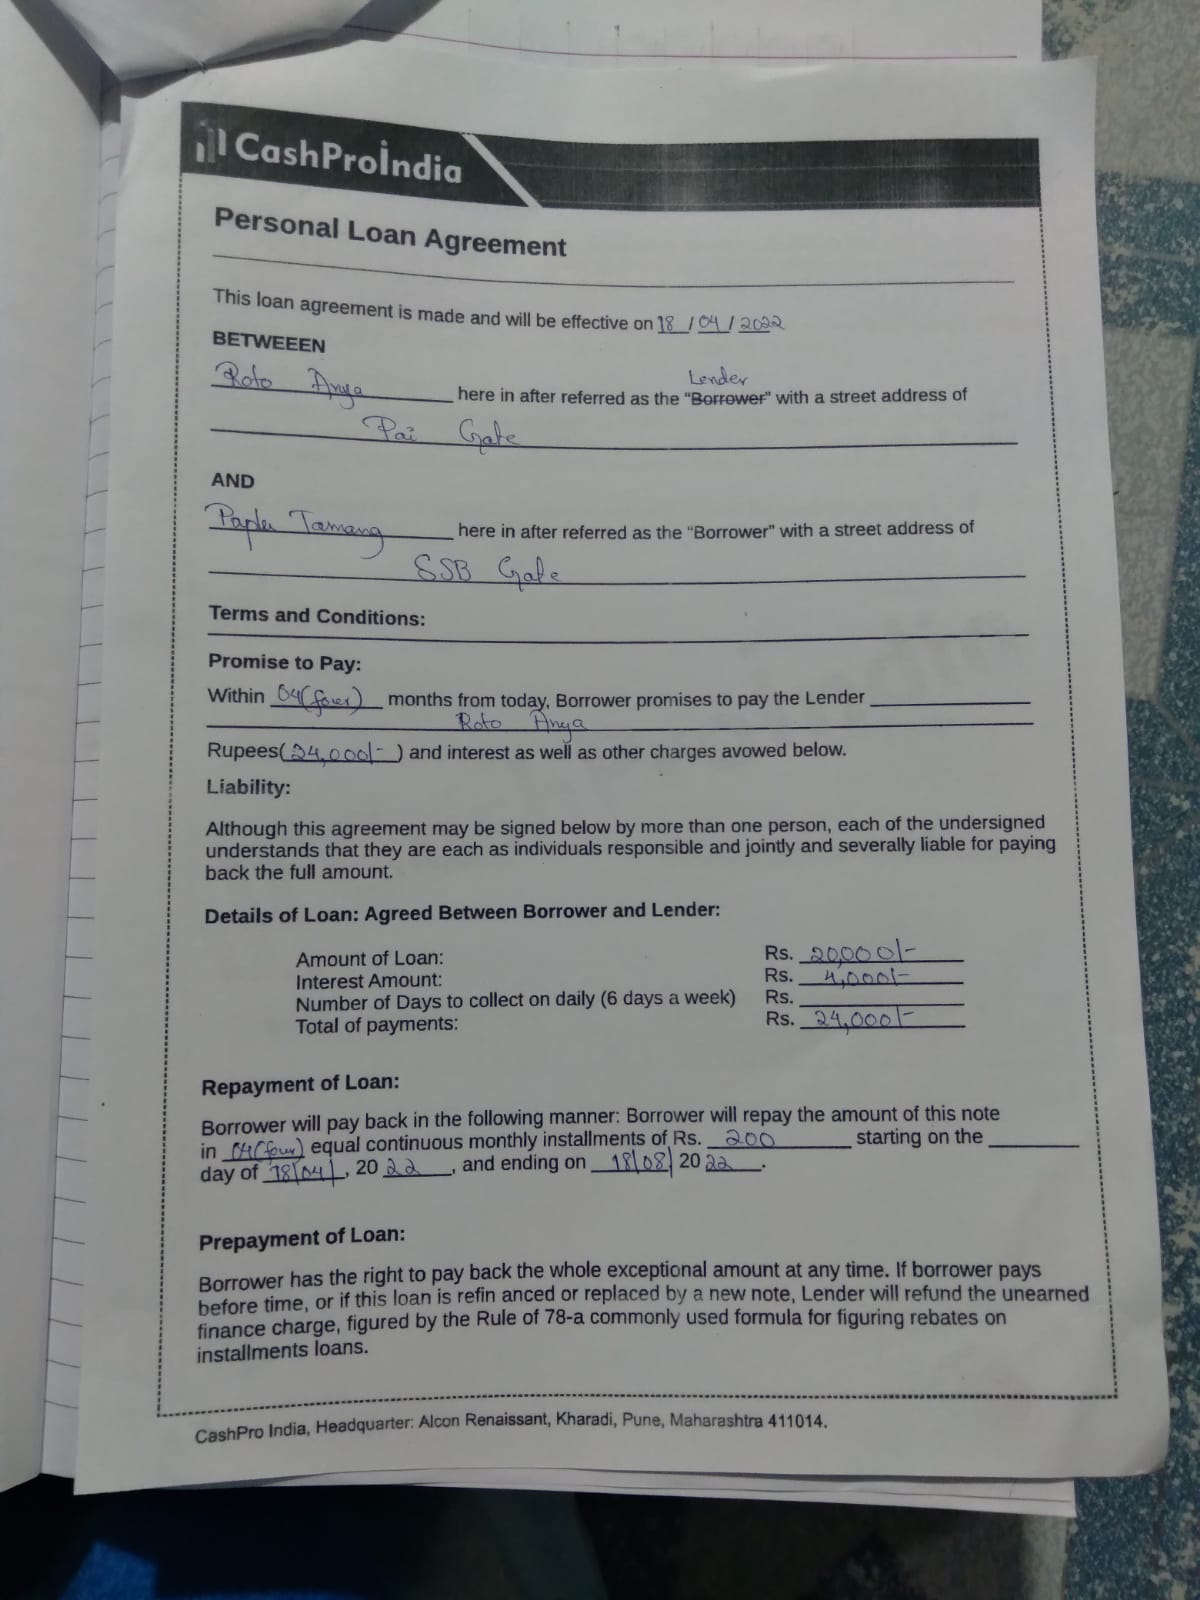 CashProindia
Personal Loan Agreement
This loan agreement is made and will be effective on 18 / 04 / 2022
BETWEEEN
Lender
Roto Anya here in after referred as the "Borrower" with a street address of
Pai Gate
AND
Paplu Tamang here in after referred as the “Borrower” with a street address of
SSB Gate
Terms and Conditions:
Promise to Pay:
Within 04(four) months from today, Borrower promises to pay the Lender
Roto Anya
Rupees( 24,000/- ) and interest as well as other charges avowed below.
Liability:
Although this agreement may be signed below by more than one person, each of the undersigned
understands that they are each as individuals responsible and jointly and severally liable for paying
back the full amount.
Details of Loan: Agreed Between Borrower and Lender:
Amount of Loan: Rs. 20,000/-
Interest Amount: Rs. 4,000/-
Number of Days to collect on daily (6 days a week) Rs.
Total of payments: Rs. 24,000/-
Repayment of Loan:
Borrower will pay back in the following manner: Borrower will repay the amount of this note
in 04(four) equal continuous monthly installments of Rs. 200 starting on the
day of 18/04/, 20 22 , and ending on 18/08/ 20 22 .
Prepayment of Loan:
Borrower has the right to pay back the whole exceptional amount at any time. If borrower pays
before time, or if this loan is refin anced or replaced by a new note, Lender will refund the unearned
finance charge, figured by the Rule of 78-a commonly used formula for figuring rebates on
installments loans.
CashPro India, Headquarter: Alcon Renaissant, Kharadi, Pune, Maharashtra 411014.